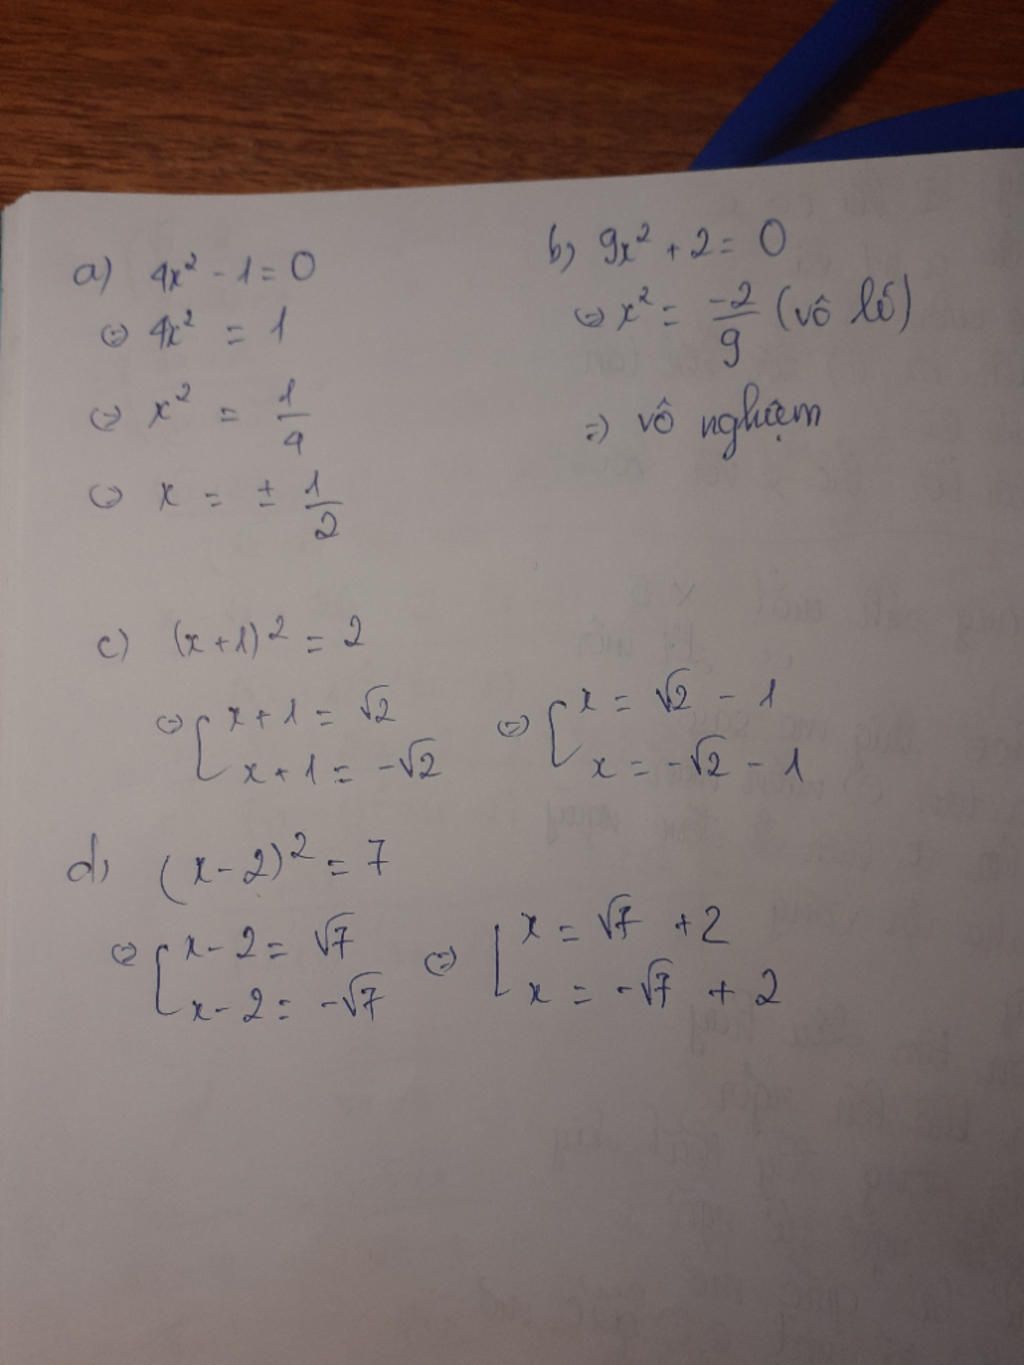 a) 4x² - 1 = 0
⇔ 4x² = 1
⇔ x² = 1/4
⇔ x = ± 1/2
b) 9x² + 2 = 0
⇔ x² = -2/9 (vô lí)
=) vô nghiệm
c) (x+1)² = 2
⇔ [ x + 1 = √2 ⇔ [ x = √2 - 1
x + 1 = -√2 x = -√2 - 1
d) (x - 2)² = 7
⇔ [ x - 2 = √7 ⇔ [ x = √7 + 2
x - 2 = -√7 x = -√7 + 2